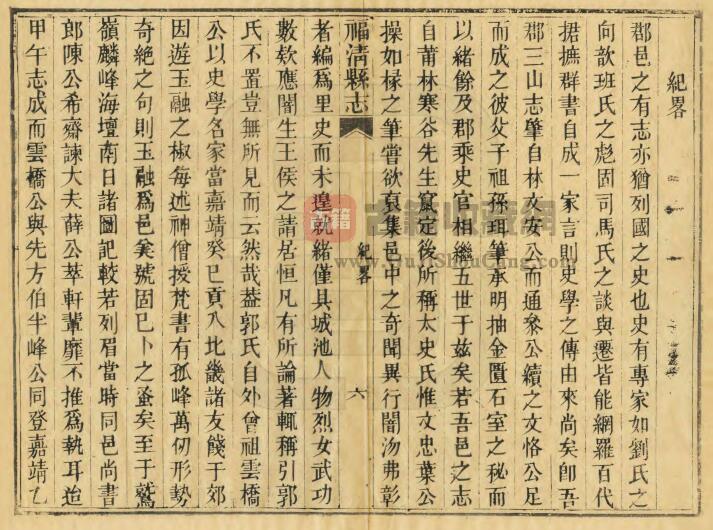 紀畧
郡邑之有志亦猶列國之史也史有專家如劉氏之
向歆班氏之彪固司馬氏之談與遷皆能網羅百代
捃摭群書自成一家言則史學之傳由來尚矣卽吾
郡三山志肇自林文安公而通叅公續之文恪公足
而成之彼父子祖孫珥筆承明抽金匱石室之秘而
以緒餘及郡乘史官相繼五世于兹矣若吾邑之志
自莆林寒谷先生竄定後所稱太史氏惟文忠葉公
操如椽之筆嘗欲裒集邑中之奇聞異行闇汤弗彰
福淸縣志
紀畧
六
者編爲里史而未遑就緒僅具城池人物烈女武功
數欵應閣生王侯之請居恒凡有所論著輒稱引郭
氏不置豈無所見而云然哉葢郭氏自外曾祖雲橋
公以史學名家當嘉靖癸巳貢入北畿諸友餞于郊
因遊玉融之椒每述神僧授梵書有孤峰萬仞形勢
奇絶之句則玉融爲邑矣號固已卜之蚤矣至于鷲
嶺麟峰海壇南日諸圖記較若列眉當時同邑尚書
郎陳公希齋諫大夫薛公萃軒輩靡不推爲執耳迨
甲午志成而雲橋公與先方伯半峰公同登嘉靖乙
古籍收藏网
www.GuJiShouCang.com